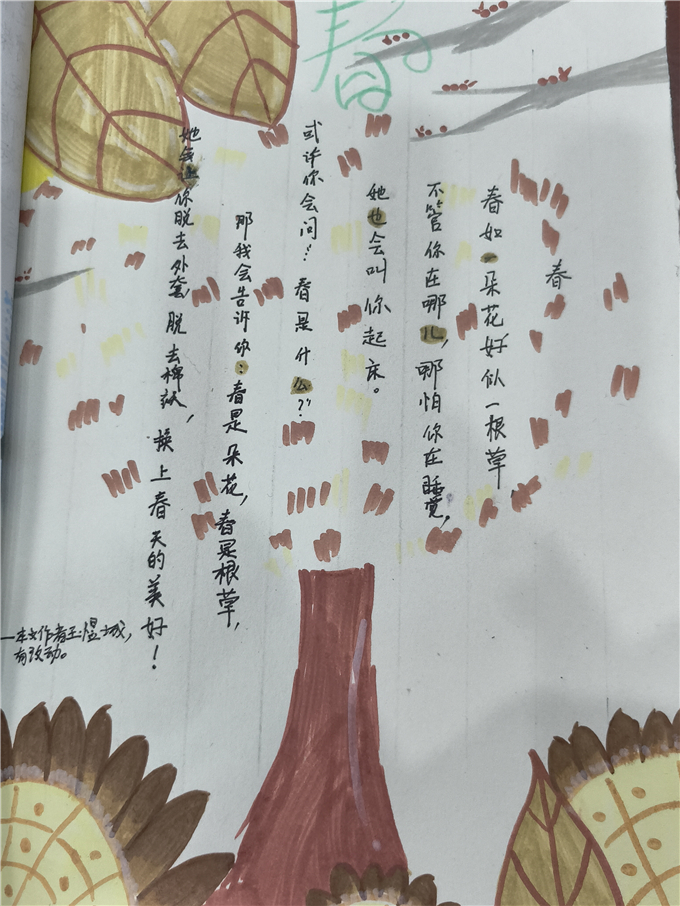 春
春
春如一朵花好似一根草,
不管你在哪儿,哪怕你在睡觉,
她也会叫你起床。
或许你会问:"春是什么?"
那我会告诉你:春是朵花,春是根草,
她会让你脱去外套,脱去棉袄,换上春天的美好!
一本文作者王煜城,
有改动。